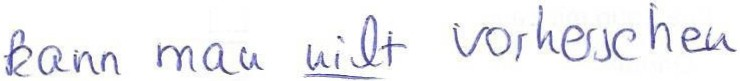 kann man nicht vorhersehen